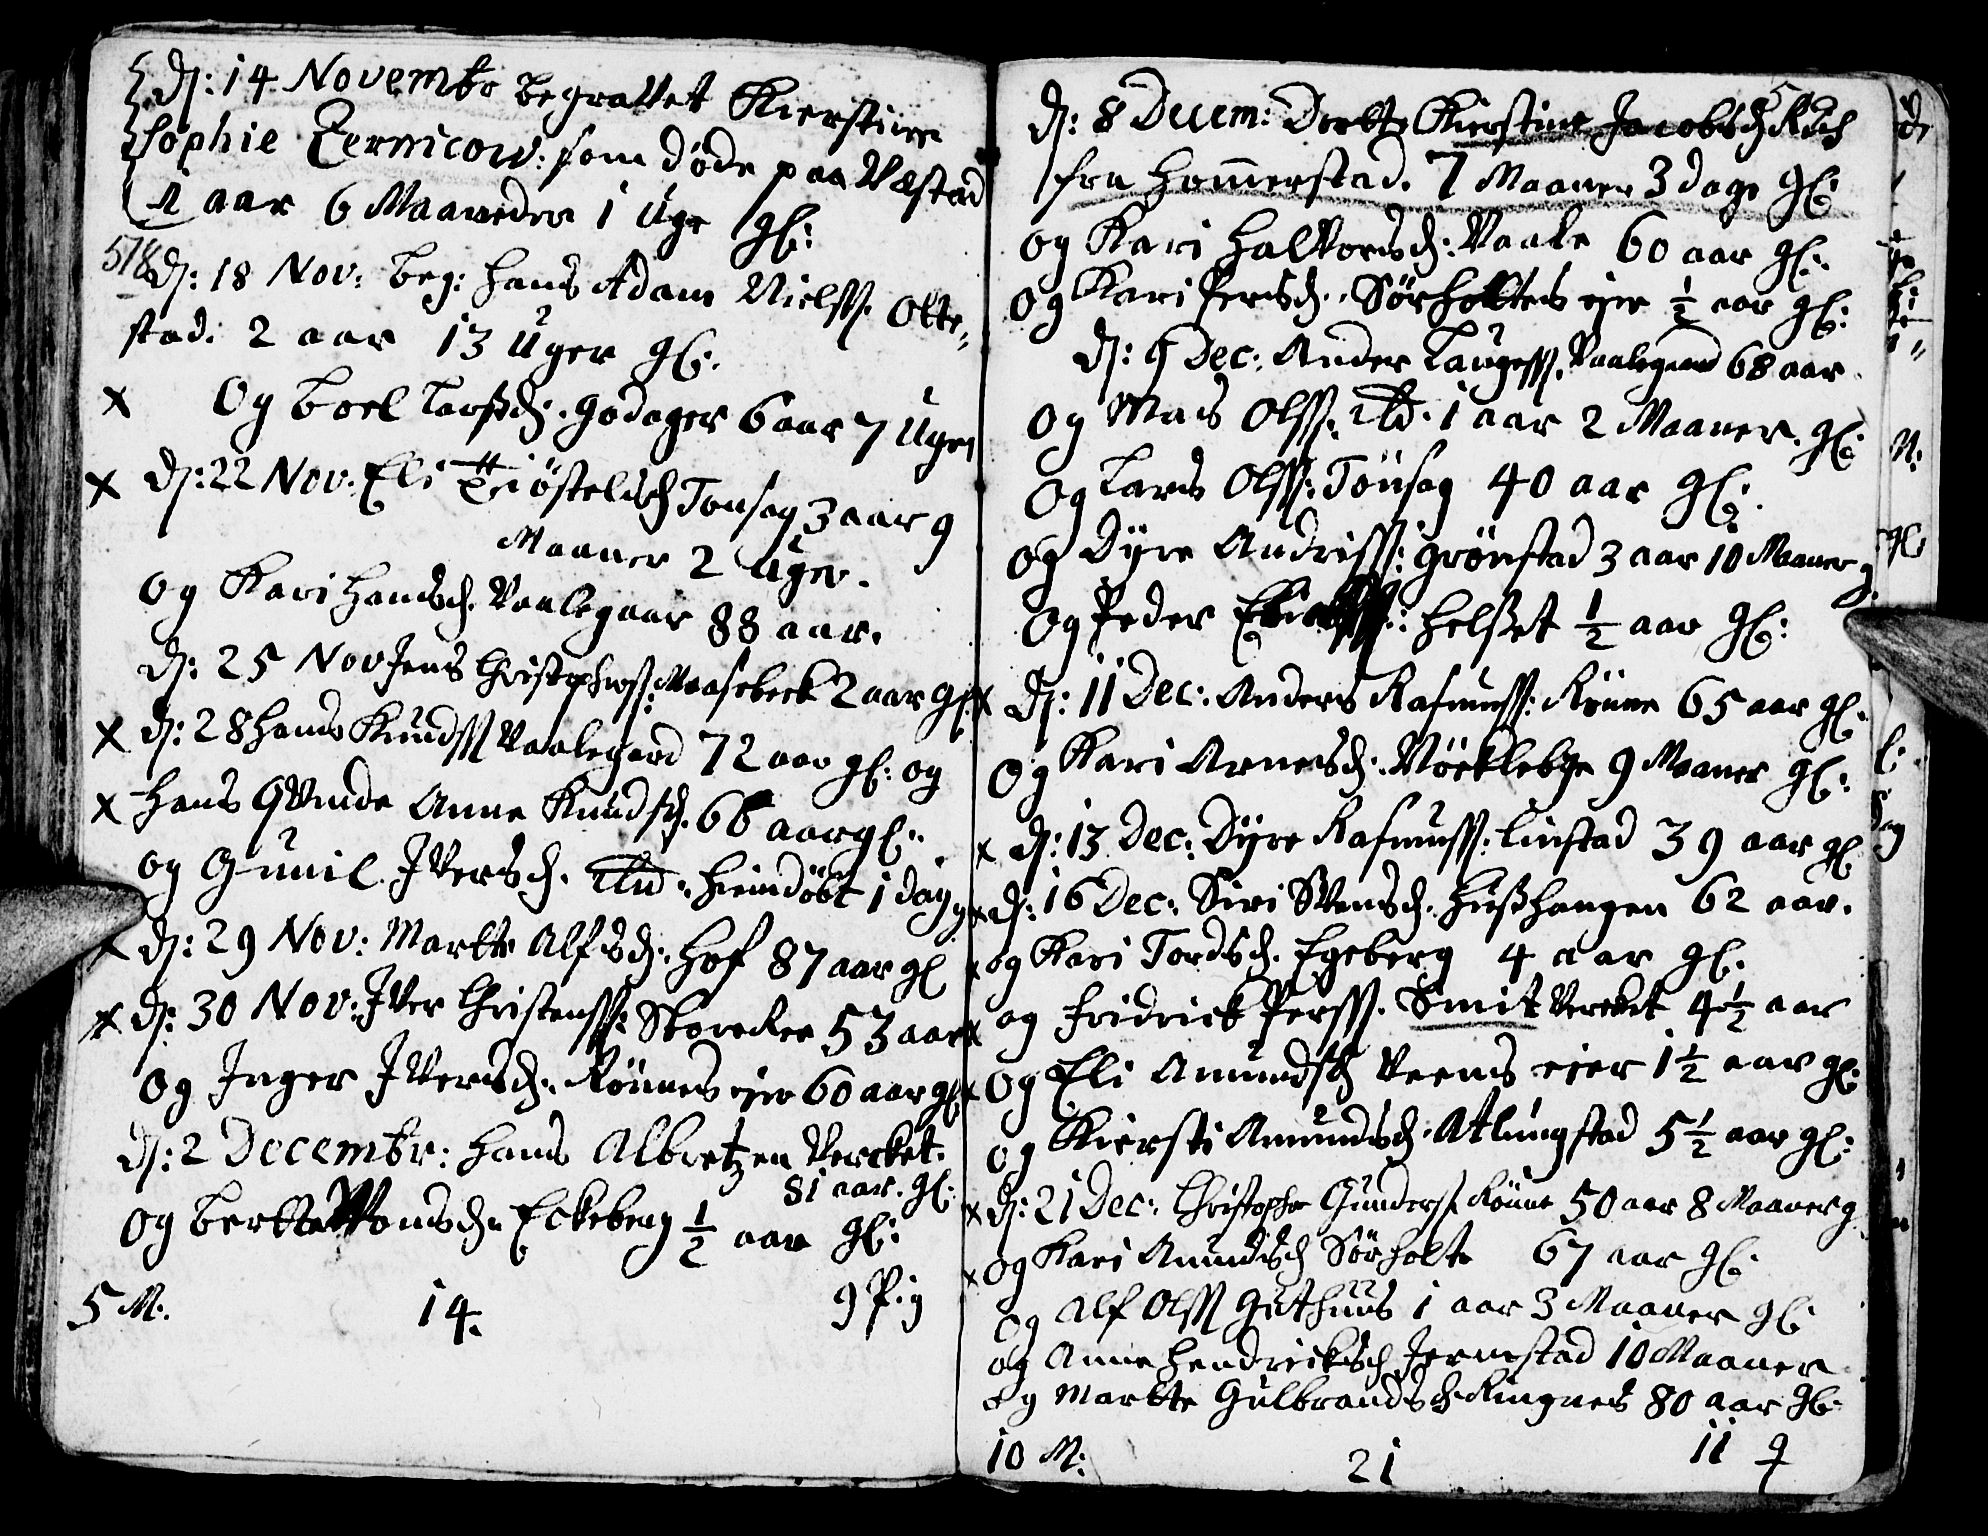 D: 14 Novembr begravet Kierstine
Sophie Zernicow: som døde paa Næstad
1 aar 6 Maaneder 1 Uge gl:
518
D: 18 Nov: beg: Hans Adam Nielss. Otte,,
stad: 2 aar 13 Uger gl:
x Og Boel Larsd: Godager 6 aar 7 Uger
x D: 22 Nov: Eli Tiøstelsd Tonsag 3 aar 9
Maaner 2 Uger.
Og Kari Hansd. Vaalegaar 88 aar.
D: 25 Nov Jens Christophers: Maasebeck 2 aar gl:
x D: 28 Hans Knudss Vaalegard 72 aar gl: og
x Hans Qvinde Anne Knudsd. 66 aar gl:
og Gunil Iversd. ibd: hiemdøbt 1 dag g
x D: 29 Nov: Marthe Alfsd: Hof 87 aar gl
x D: 30 Nov: Iver Christenss: Storeker 53 aar
Og Inger Iversd: Rønnes eier 60 aar gl
D: 2 Decembr: Hans Albretzen Vercket.
81 aar. gl:
Og Berthe Monsd. Eckeberg ½ aar gl:
5 M: 14. 9 P:g
D: 8 Decem: Dorthe Kierstine Jacobsd
fra Hommerstad. 7 Maaner 3 dage gl:
Og Kari Halvorsd: Vaale 60 aar gl:
Og Kari Persd: Sørholtes eie ½ aar gl:
D: 9 Dec: Ander Laugess. Vaalegaard 68 aar
Og Mads Olss. ibd. 1 aar 2 Maaner. gl:
Og Lars Olss: Tønsag 40 aar gl:
Og Dyre Andriss: Grønstad 3 aar 10 Maaner g
Og Peder : Helset ½ aar gl:
x D: 11 Dec: Anders Rasmuss: Rønne 65 aar gl:
Og Kari Arnesd: Nøcklebye 9 Maaner gl:
x D: 13 Dec: Dyre Rasmuss: Linstad 39 aar gl
x D: 16 Dec: Siri Svensd. Hushangen 62 aar.
x og Kari Tordsd. Egeberg 4 aar gl:
x og Fridrick Perss. Smit Vercket 4½ aar
x Og Eli Amundsd Veens eier 1½ aar gl:
og Kiersti Amundsd: Atlungstad 5½ aar gl:
x D: 21 Dec: Christopher Gunderss Rønne 50 aar 8 Maaner g
x Og Kari Amundsd Sørholte 67 aar gl:
Og Alf Olss Guthuus 1 aar 3 Maaner gl:
og Anne Hendricksd Jernstad 10 Maaner
og Marthe Gulbrandsd Ringnes 80 aar gl:
10 M: 21 11 ♀